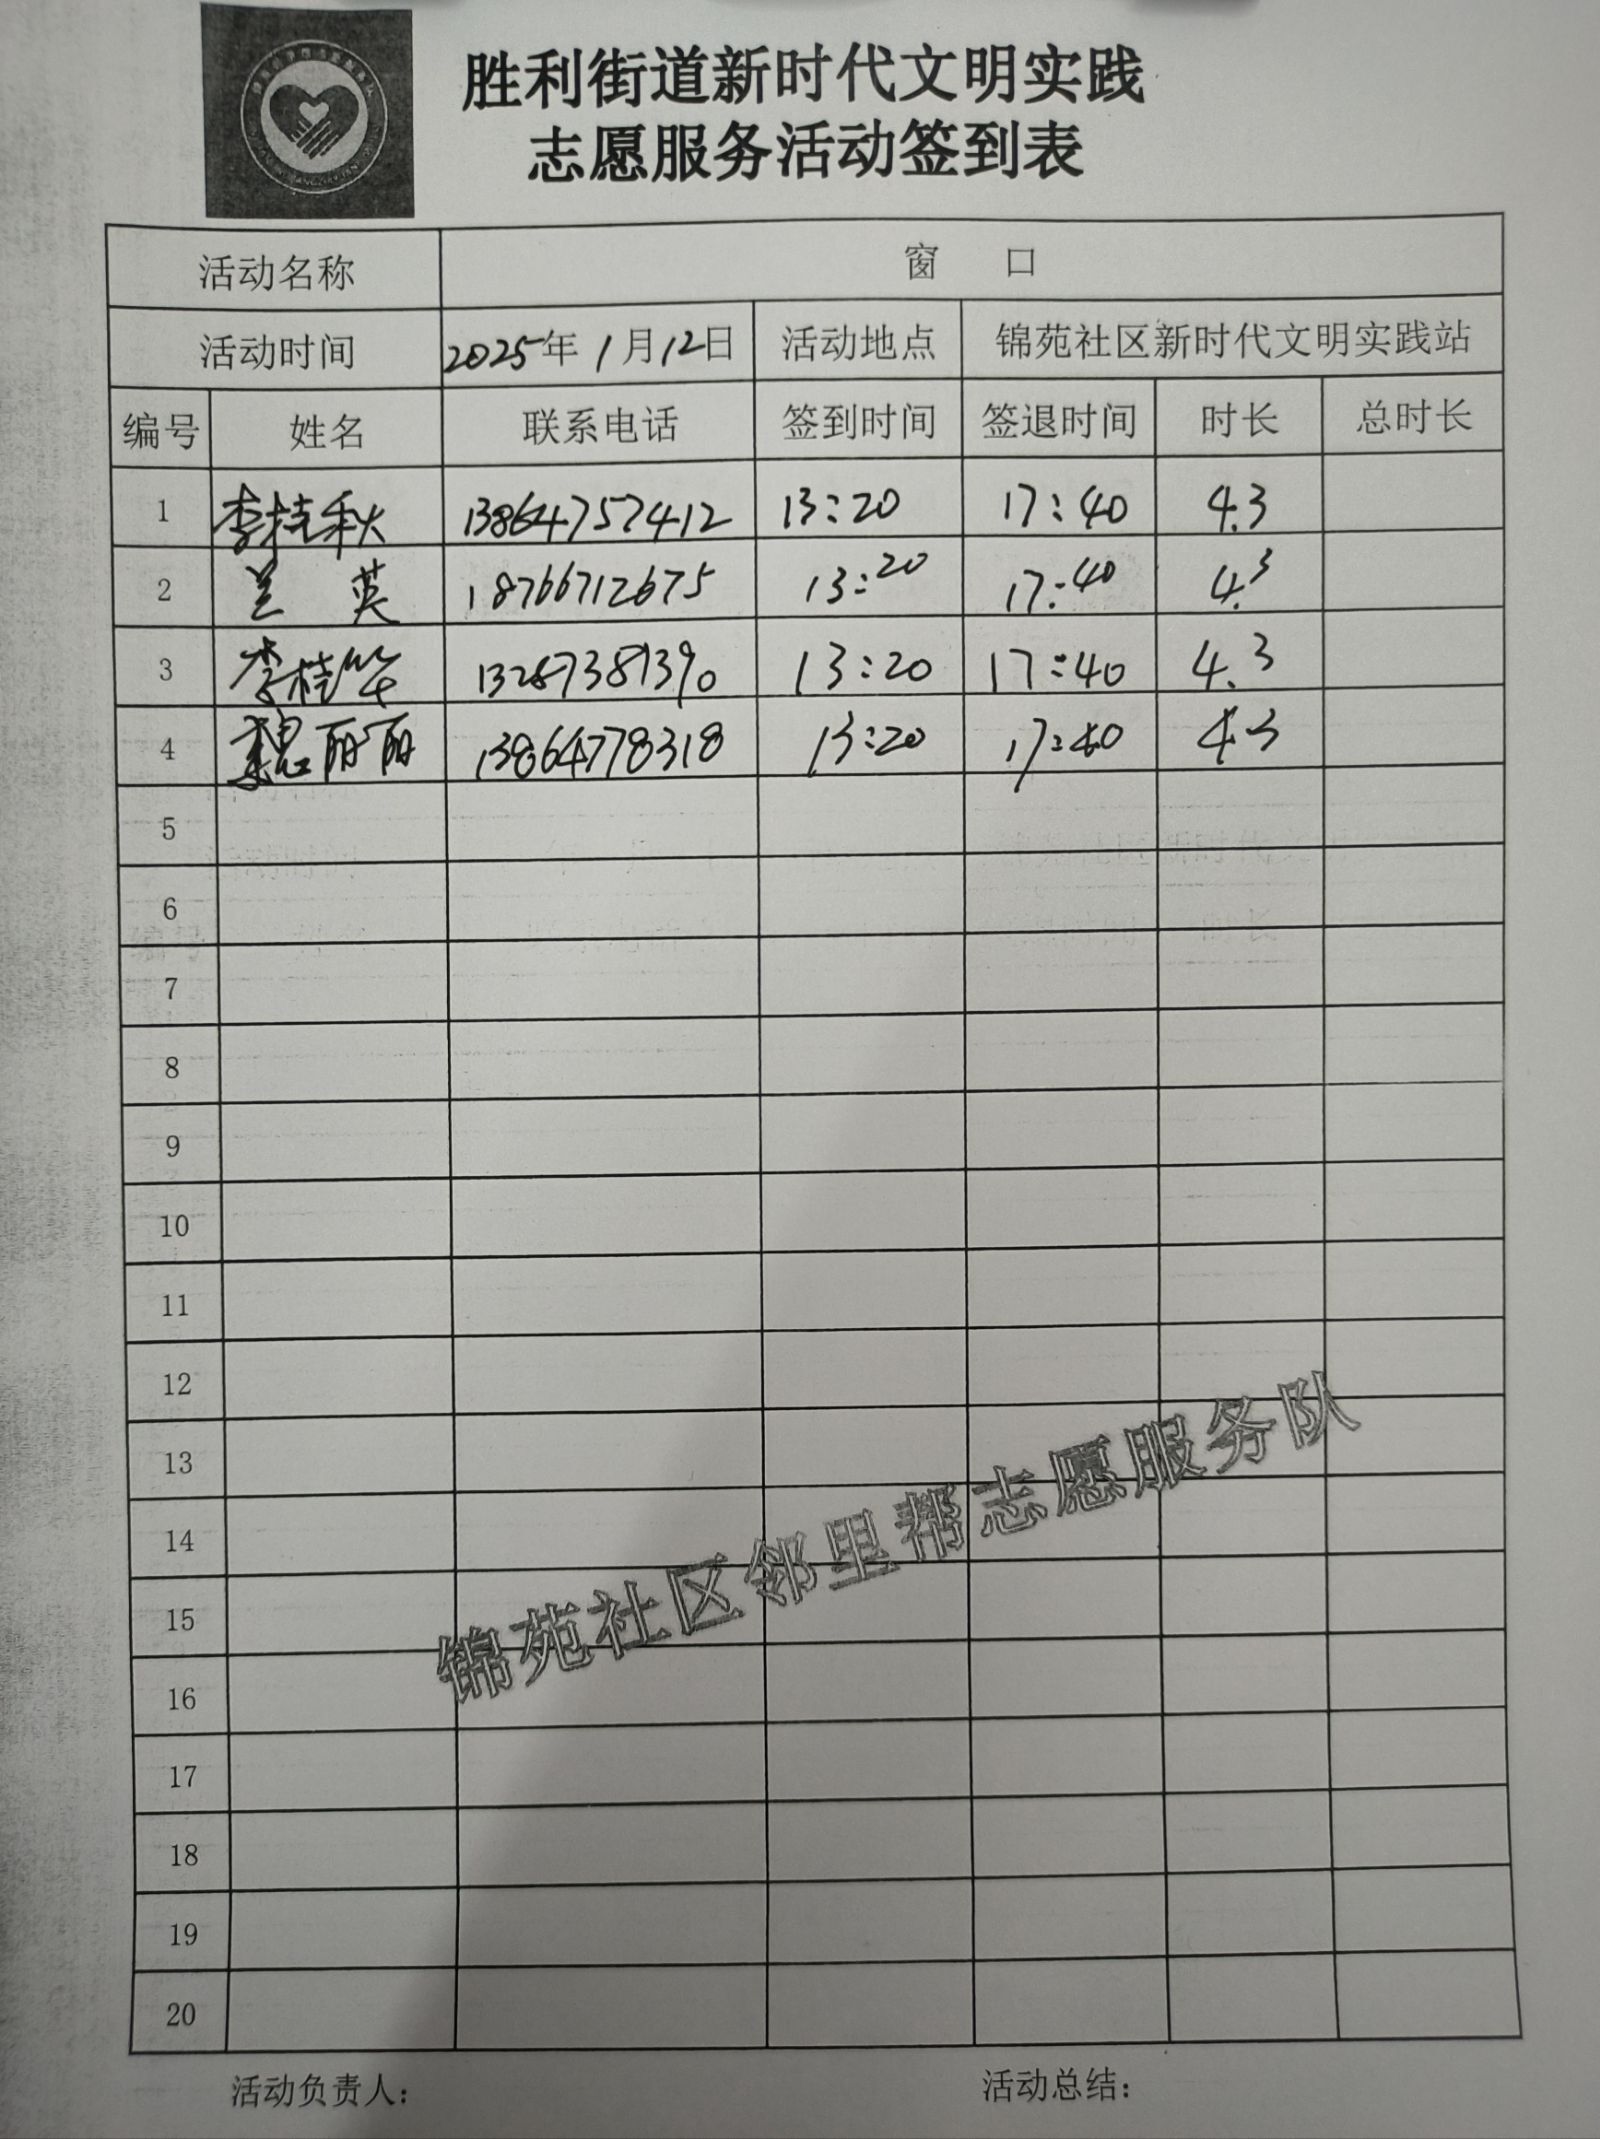 胜利街道新时代文明实践
志愿服务活动签到表
活动名称 窗 口
活动时间 2025年1月12日 活动地点 锦苑社区新时代文明实践站
编号 姓名 联系电话 签到时间 签退时间 时长 总时长
1 李桂秋 13864757412 13:20 17:40 4.3
2 兰英 18766712675 13:20 17:40 4.3
3 李桂华 13287381390 13:20 17:40 4.3
4 魏丽丽 13864778318 13:20 17:40 4.3
5
6
7
8
9
10
11
12
13
14
15
16
17
18
19
20
锦苑社区邻里帮志愿服务队
活动负责人: 活动总结: